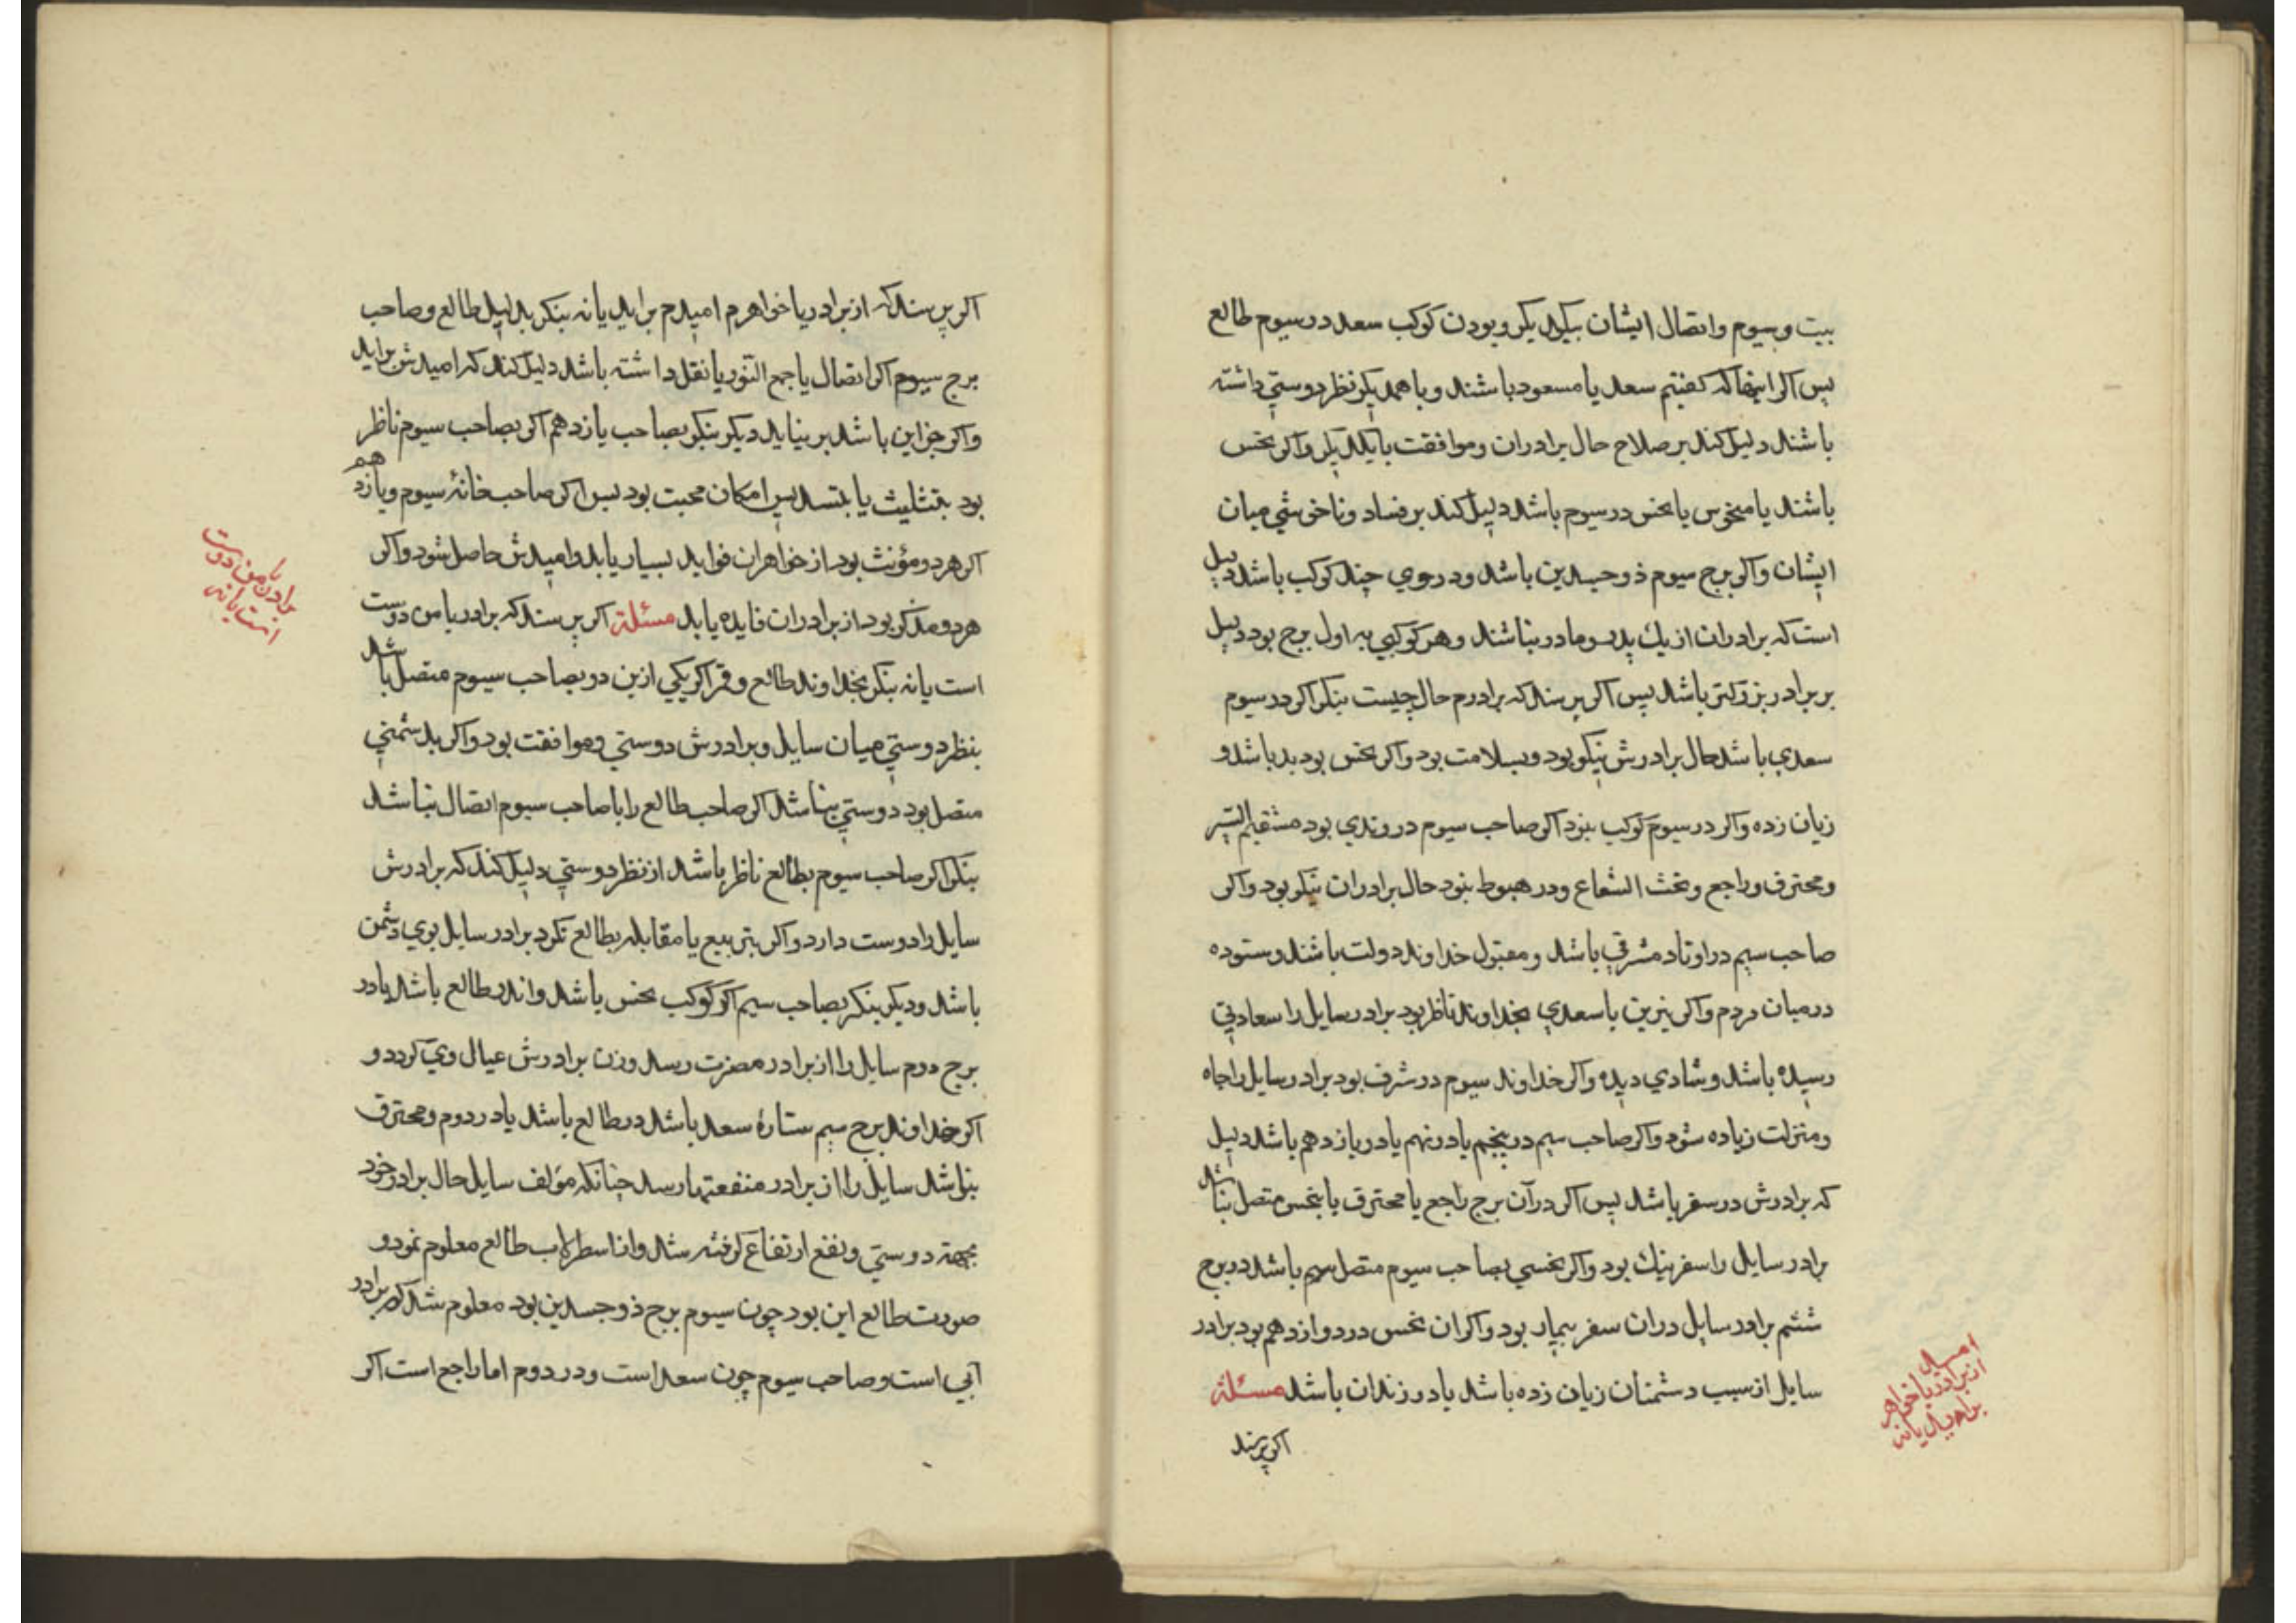 بیت وسیوم واتصال ایشان بیکدیکر وبودن کوکب سعد در سیوم طالع
پس اکر اینها که کفتیم سعد یا مسعود باشند وباهمدیکر نظر دوستي داشته
باشند دلیل کند بر صلاح حال برادران وموافقت بایکدیکر واکر نحس
باشند یا منحوس یا نحس در سیوم باشد دلیل کند بر فساد وناخوشي میان
ایشان واکر برج سیوم ذوجسدین باشد ودروي چند کوکب باشد دلیل
است که برادران از یك پدر ومادر نباشند وهر کوکبي به اول برج بود دلیل
بر برادر بزرکتر باشد پس اکر پرسند که برادرم حال چیست بنکر اکر در سیوم
سعدي باشد حال برادرش نیکو بود وبسلامت بود واکر نحس بود بد باشد و
زیان زده واکر در سیوم کوکب نبود اکر صاحب سیوم در وتدي بود مستقیم السیر
ومحترق وراجع وتحت الشعاع ودر هبوط نبود حال برادران نیکو بود واکر
صاحب سیم در اوتاد مشرقي باشد ومقبول خداوند دولت باشند وستوده
درمیان مردم واکر نیرین یا سعدي بخداوند ناظر بود برادر سایل را سعادتي
رسیده باشد وشادي دیده واکر خداوند سیوم در شرف بود برادر سایل را جاه
ومنزلت زیاده شود واکر صاحب سیم در پنجم یا در نهم یا در یازدهم باشد دلیل
که برادرش در سفر باشد پس اکر در آن برج راجع یا محترق یا بنحس متصل نباشد
برادر سایل را سفر نیك بود واکر نحسي بصاحب سیوم متصل باشد در برج
ششم برادر سایل دران سفر بیمار بود واکر ان نحس در دوازدهم بود برادر
سایل از سبب دشمنان زیان زده باشد یا در زندان باشد مسئلة
اکر پرسند
امید
از برادر یا خواهر
براید یا نه
اکر پرسند که از برادر یا خواهرم امیدم براید یا نه بنکر بدلیل طالع وصاحب
برج سیوم اکر اتصال یا جمع النور یا نقل داشته باشد دلیل کند که امیدش براید
واکر جز این باشد برنیاید دیکر بنکر بصاحب یازدهم اکر بصاحب سیوم ناظر
بود بتثلیث یا بتسدیس امکان محبت بود پس اکر صاحب خانۀ سیوم ویازدهم
اکر هردو مؤنث بود از خواهران فواید بسیار یابد وامیدش حاصل شود واکر
هردو مذکر بود از برادران فایده یابد مسئلة اکر پرسند که برادر با من دوست
است یا نه بنکر بخداوند طالع وقمر اکر یکي ازین دو بصاحب سیوم متصل باشد
بنظر دوستي میان سایل وبرادرش دوستي وموافقت بود واکر بدشمني
متصل بود دوستي نباشد اکر صاحب طالع را با صاحب سیوم اتصال نباشد
بنکر اکر صاحب سیوم بطالع ناظر باشد از نظر دوستي دلیل کند که برادرش
سایل را دوست دارد واکر بتربیع یا مقابله بطالع نکرد برادر سایل بوي دشمن
باشد ودیکر بنکر بصاحب سیم اکر کوکب نحس باشد واندر طالع باشد یا در
برج دوم سایل را از برادر مضرت رسد وزن برادرش عیال وي کردد و
اکر خداوند برج سیم ستارۀ سعد باشد در طالع باشد یا در دوم ومحترق
نباشد سایل را از برادر منفعتها رسد چنانکه مؤلف سایل حال برادر خود
بجهة دوستي ونفع ارتفاع کرفته شد واز اسطرلاب طالع معلوم نمود و
صورت طالع این بود چون سیوم برج ذوجسدین بود معلوم شد که برادر
ابي است وصاحب سیوم چون سعد است ودر دوم اما راجع است اکر
برادرن با من دوست
است یا نه